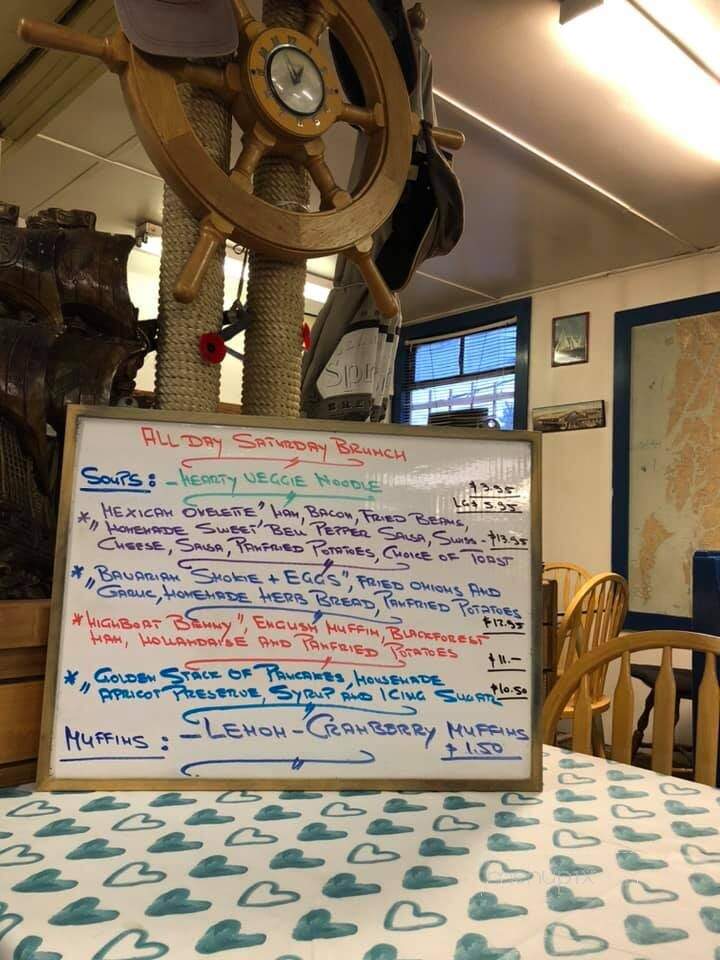 ALL DAY SATURDAY BRUNCH
SOUPS: - HEARTY VEGGIE NOODLE
$3.95
LG $5.95
* "MEXICAN OMELETTE" HAM, BACON, FRIED BEANS,
HOMEMADE SWEET BELL PEPPER SALSA, SWISS - $13.95
CHEESE, SALSA, PANFRIED POTATOES, CHOICE OF TOAST
* "BAVARIAN SMOKIE + EGGS", FRIED ONIONS AND
GARLIC, HOMEMADE HERB BREAD, PANFRIED POTATOES
$12.95
* "HIGHBOAT BENNY", ENGLISH MUFFIN, BLACKFOREST
HAM, HOLLANDAISE AND PANFRIED POTATOES
$11.-
* "GOLDEN STACK OF PANCAKES, HOMEMADE
APRICOT PRESERVE, SYRUP AND ICING SUGAR $10.50
MUFFINS: - LEMON - CRANBERRY MUFFINS
$1.50